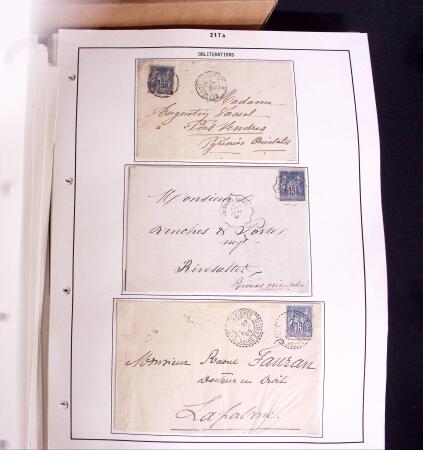 217a
OBLITERATIONS
Madame
Augustin Vassal
à Port Vendres
Pyrénées Orientales
15
Monsieur
Vinches & Porte
negt
Rivesaltes
Pyrénées orientales
15
15
Monsieur Raoul Fauran
Docteur en Droit
Lapalme.